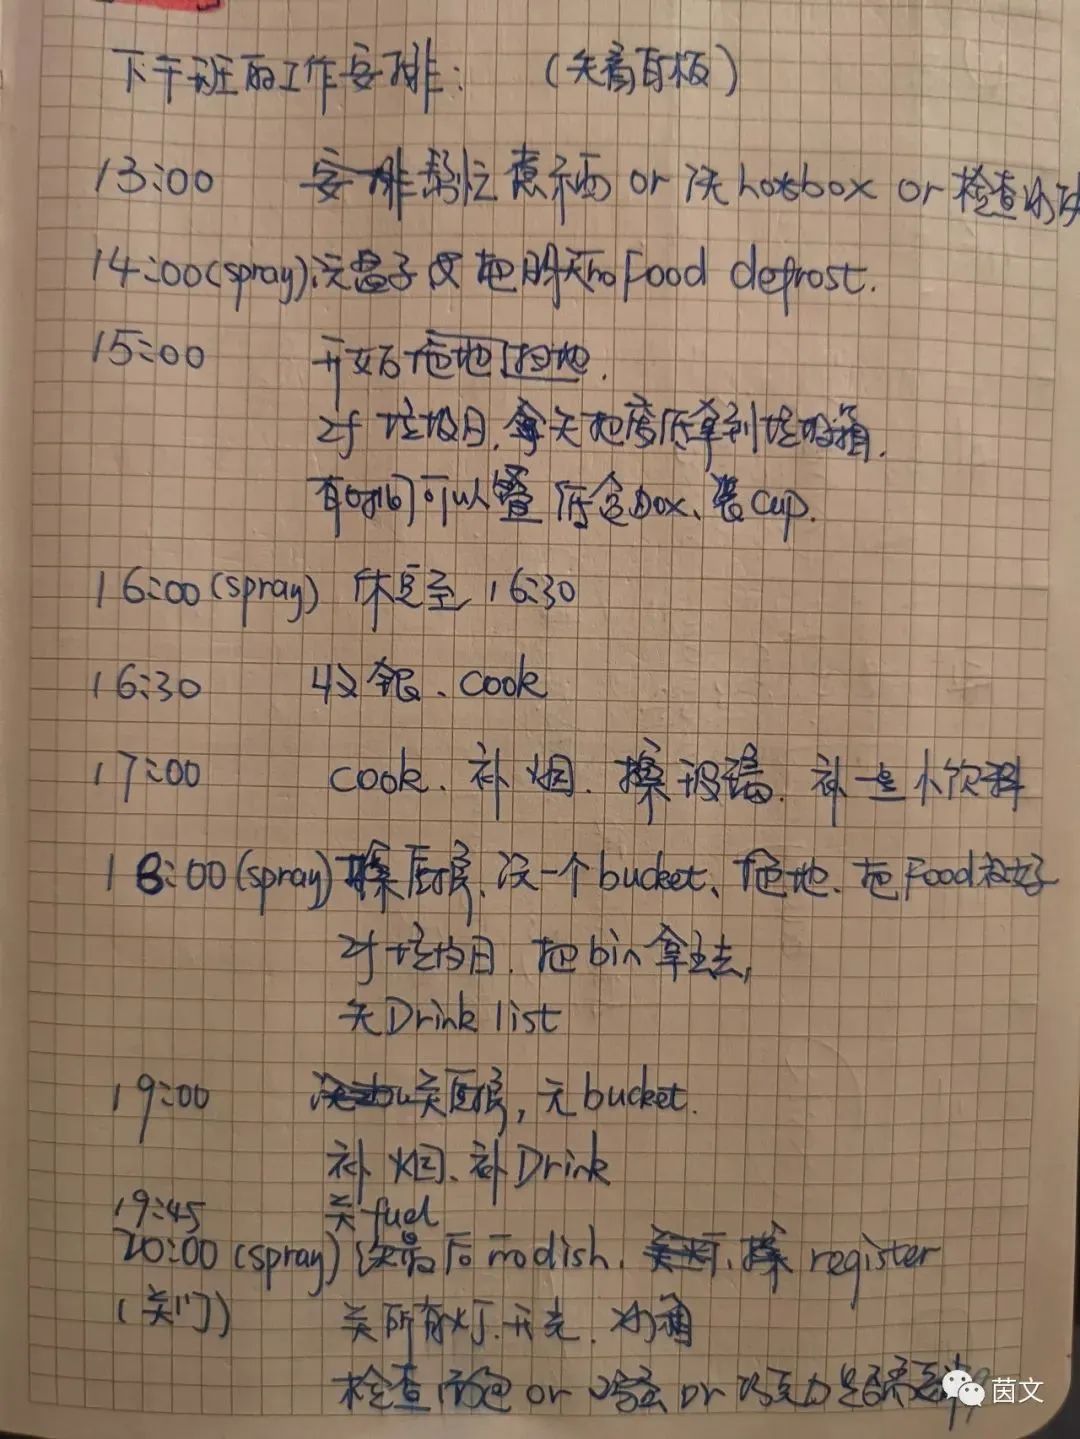 下午班的工作安排: (关着百板)
13:00 安排帮忙煮 or 洗hotbox or 检查
14:00(spray) 洗盘子 及把明天的Food defrost.
15:00 开始拖地 扫地.
对垃圾日, 每天把废纸拿到垃圾箱.
有时候可以叠纸盒box、装cup.
16:00(spray) 休息至 16:30
16:30 收银、cook
17:00 cook. 补烟. 擦玻璃. 补一些小饮料
18:00(spray) 擦后仓、洗一个bucket、拖地、把Food
对垃圾日. 把bin拿去,
Drink list
19:00 关后, bucket.
补烟、补Drink
19:45 关fuel
20:00(spray) 洗最后的dish. 擦register
(关门) 关所有灯. 开 冰箱
检查面包 or or 巧克力是否
茵文